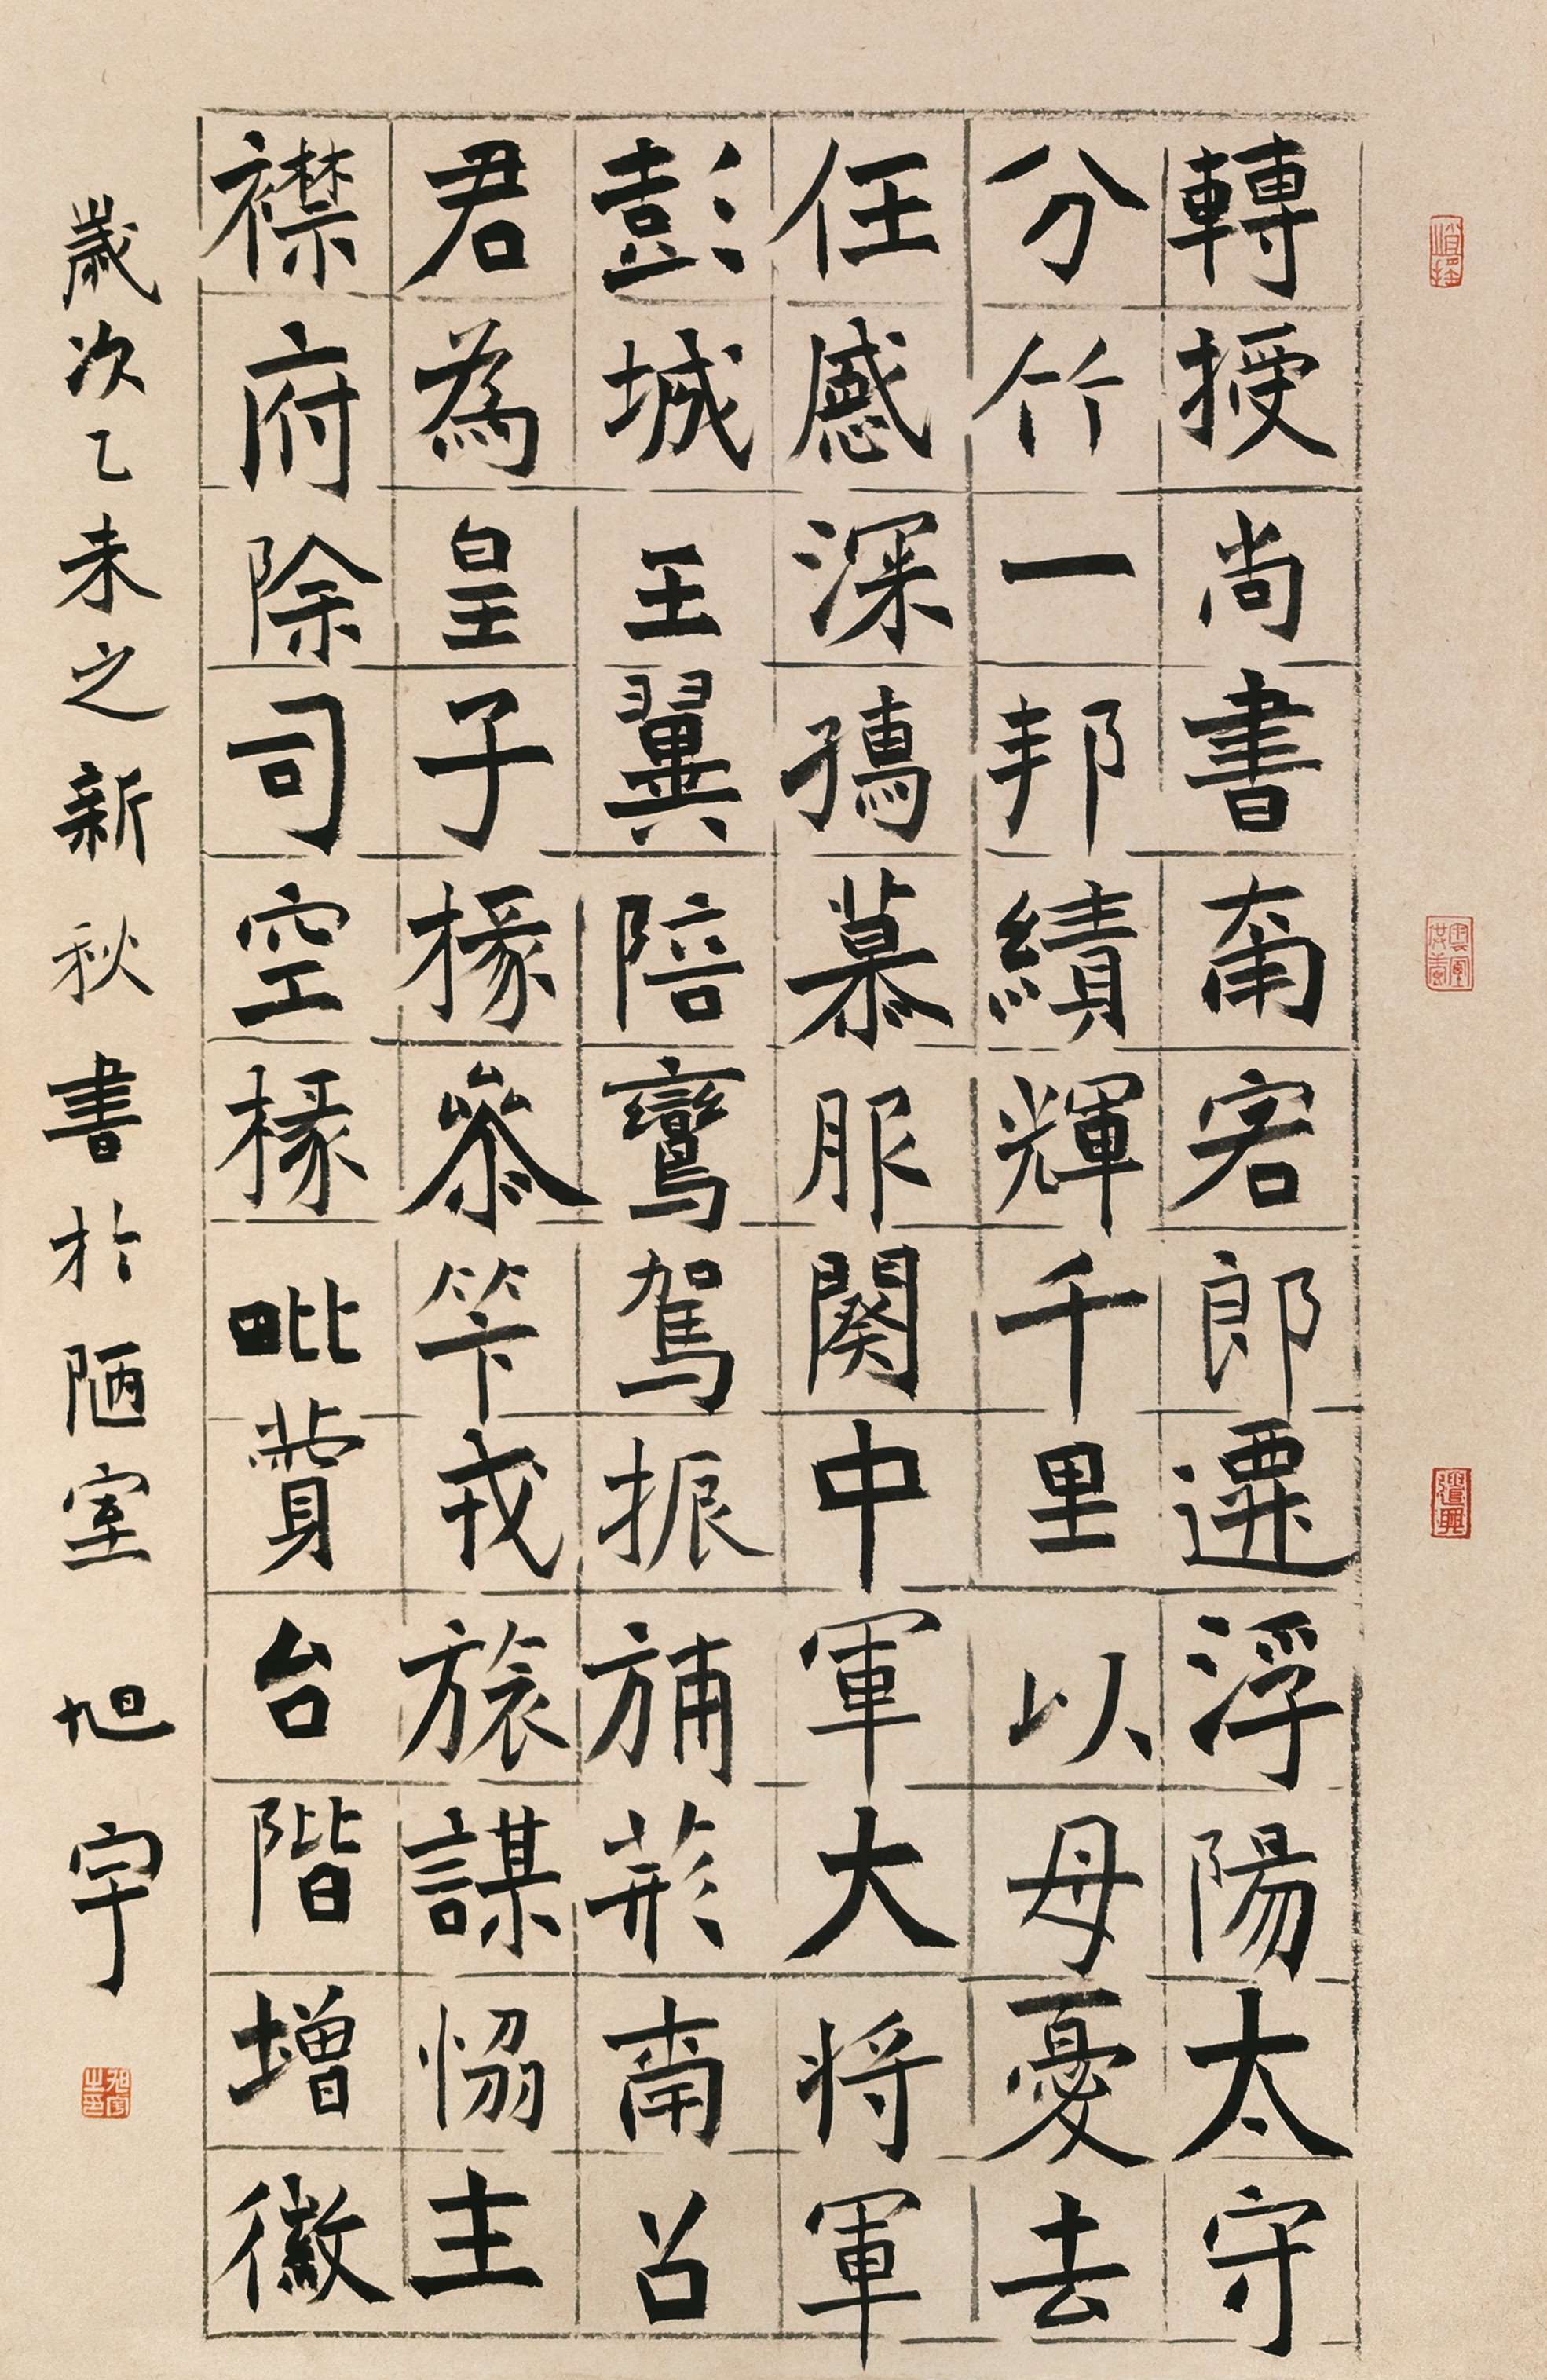 轉授尚書南客郎遷浮陽太守
分竹一邦績輝千里以母憂去
任感深孺慕服闋中軍大將軍
彭城王翼陪鸞駕振旆荊南召
君為皇子掾參笇戎旅謀恊主
襟府除司空掾毗贊台階增徽
歲次乙未之新秋書於陋室 旭宇
旭宇之印